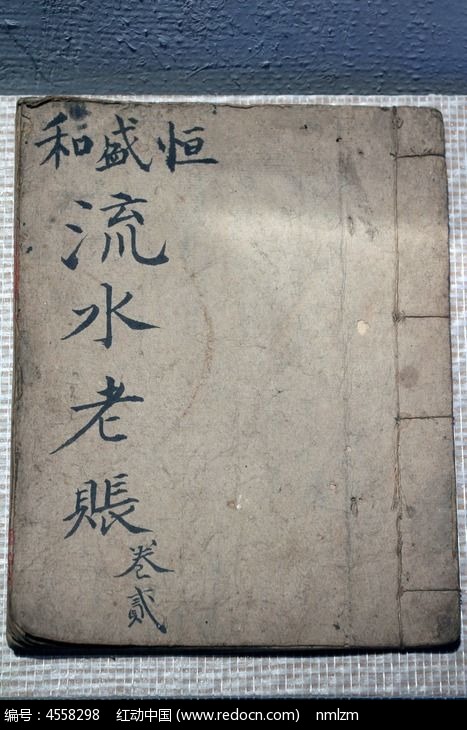 恒盛和
流水老賬
卷貳
编号：4558298 红动中国 (www.redocn.com) nmlzm